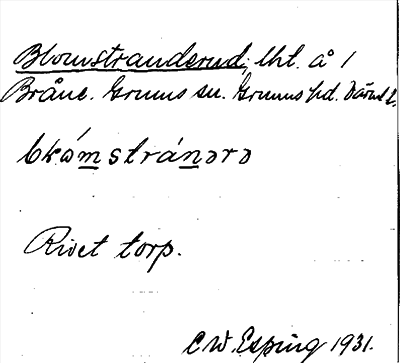 Blomstranderud, lht. å 1
Bråne. Grums sn. Grums hd. Värml l.
bḱəm̲stráṉərə
Rivet torp.
C W. Esping 1931.